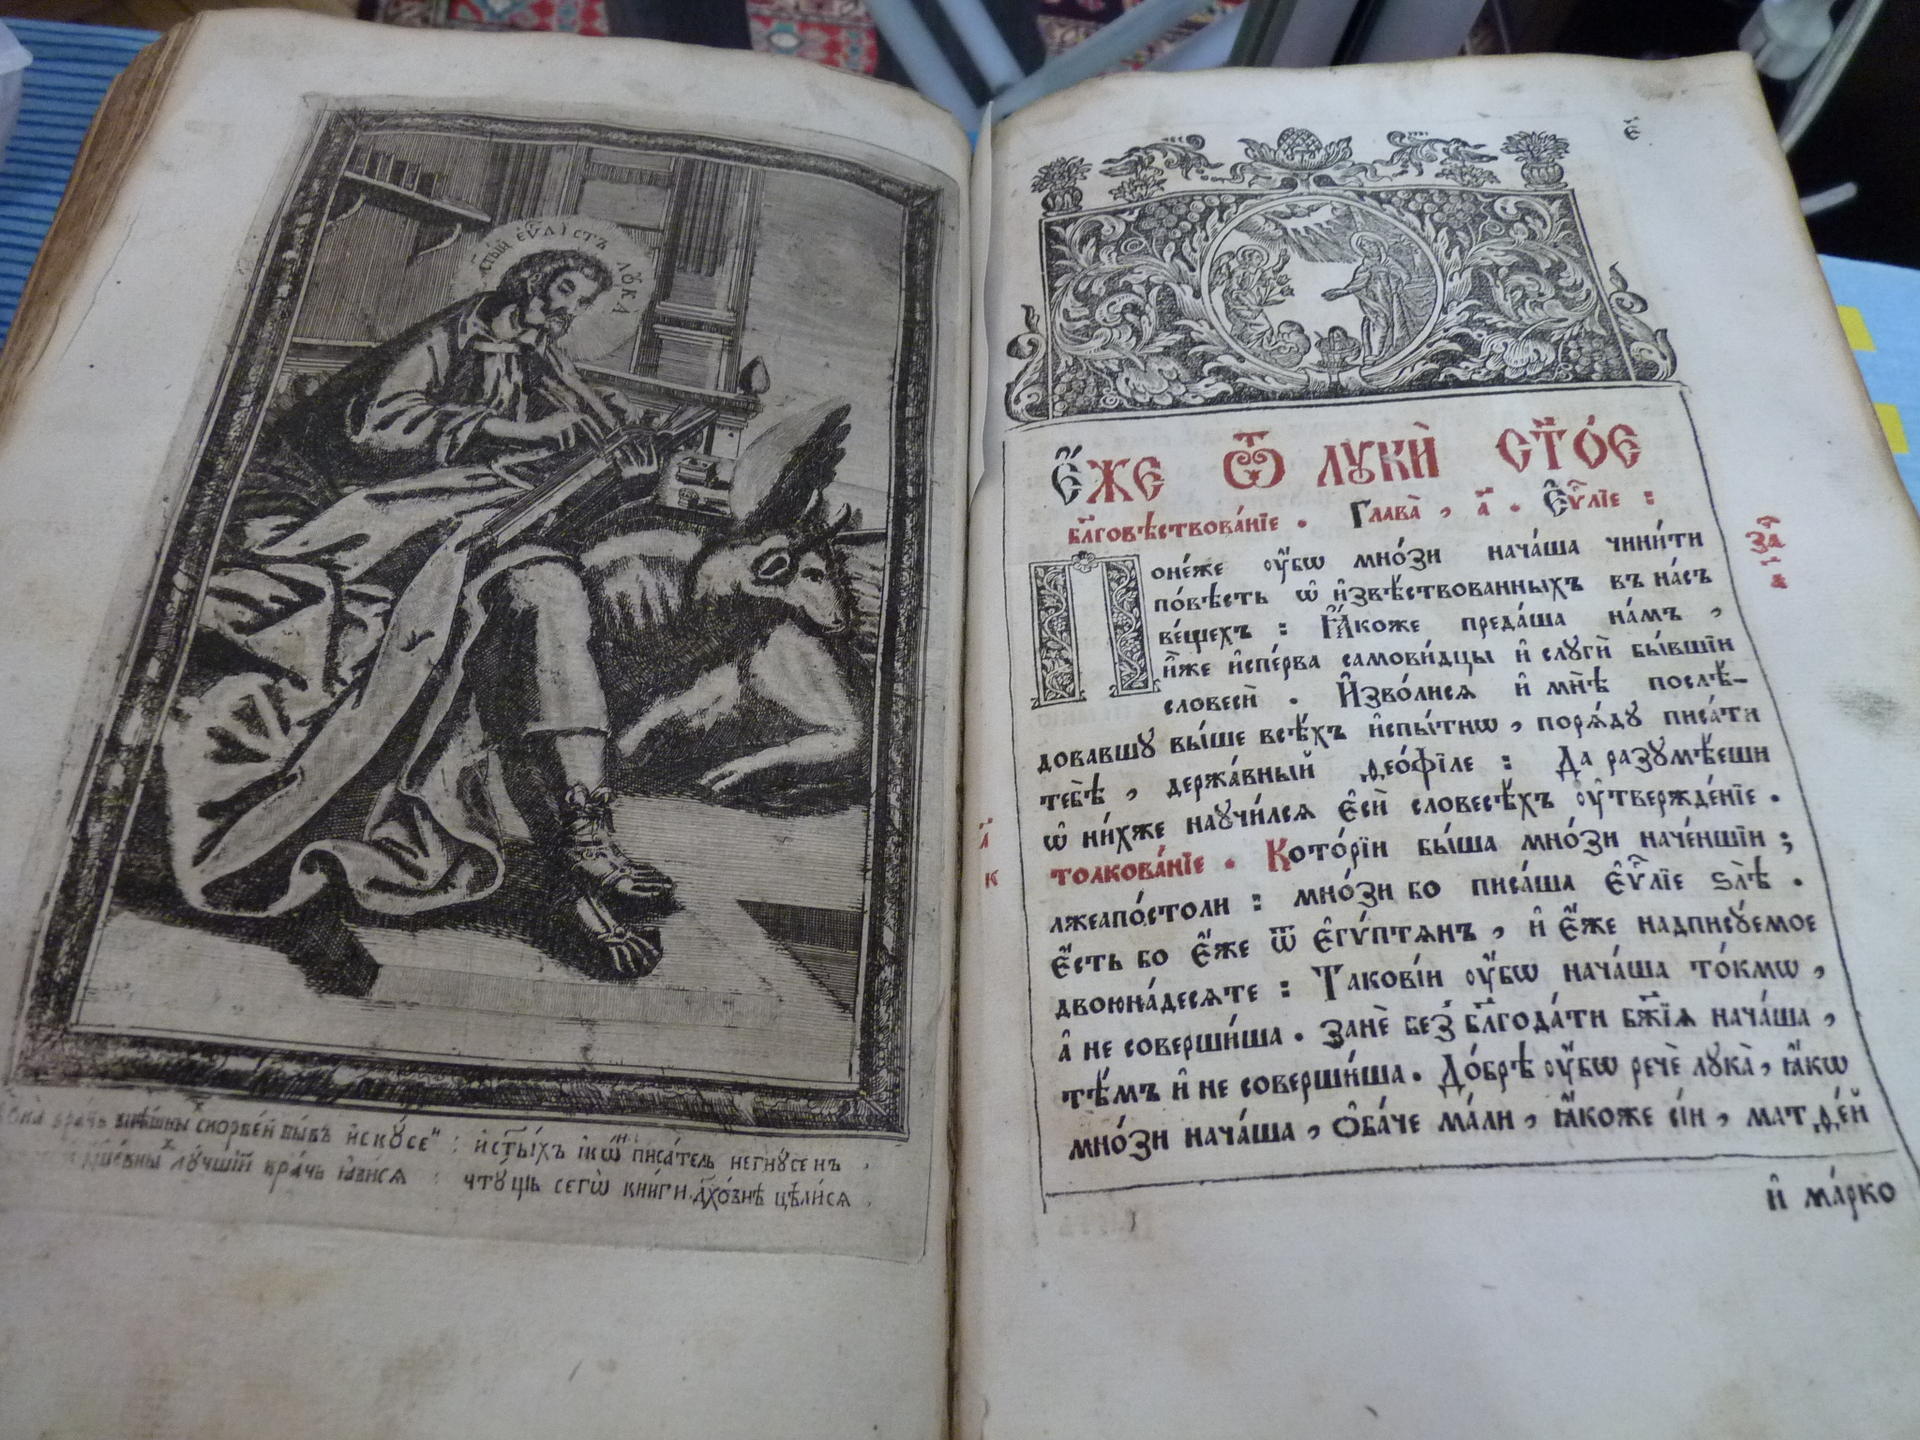 СТ҃ЫЙ ЕѴ҃ЛІСТЪ
ЛꙊКА
врачь внѣшны скорбей бывъ искꙋсе
и ст҃ыхъ ікѡ писатель негнꙋсенъ
лꙋчшій врачь ꙗвися
чтꙋщь сегѡ книги дх҃овнѣ цѣлися
є҃
Е҆́же Ѿ лꙋкѝ ст҃о́е
бл҃говѣствова́нїе . Глава̀ , а҃ . Е҆ѵ҃лїе :
За
а҃
Поне́же ᲂу҆́бѡ мно́зи нача́ша чини́ти
по́вѣсть ѡ҆ и҆звѣ́ствованныхъ въ на́съ
ве́щехъ : Ꙗ҆́коже преда́ша на́мъ ,
и҆̀же и҆спе́рва самови́дцы и҆ слꙋгѝ бы́вшїи
словесѝ . И҆зво́лися и҆ мнѣ̀ послѣ́-
довавшꙋ вы́ше всѣ́хъ и҆спы́тнѡ , поря́дꙋ писа́ти
тебѣ̀ , держа́вный ѳео́фїле : Да разꙋмѣ́еши
ѡ҆ ни́хже наꙋчи́лся є҆сѝ словесѣ́хъ ᲂу҆твержде́нїе .
а҃
к
толкова́нїе . Кото́рїи бы́ша мно́зи наче́ншїи ;
лжеапо́столи : мно́зи бо писа́ша є҆ѵ҃лїе ѕлѣ̀ .
Е҆́сть бо є҆́же ѿ є҆гѵ́птянъ , и҆ є҆́же надписꙋ́емое
двоюна́десяте : Такові́и ᲂу҆́бѡ нача́ша то́кмѡ ,
а҆ не соверши́ша . Занѐ без̾ бл҃года́ти бж҃їѧ нача́ша ,
тѣ́мъ и҆ не соверши́ша . До́брѣ ᲂу҆́бѡ речѐ лꙋка̀ , ꙗ҆́кѡ
мно́зи нача́ша , О҆ба́че ма́ли , ꙗ҆́коже сі́и , матѳе́й
и҆ ма́рко